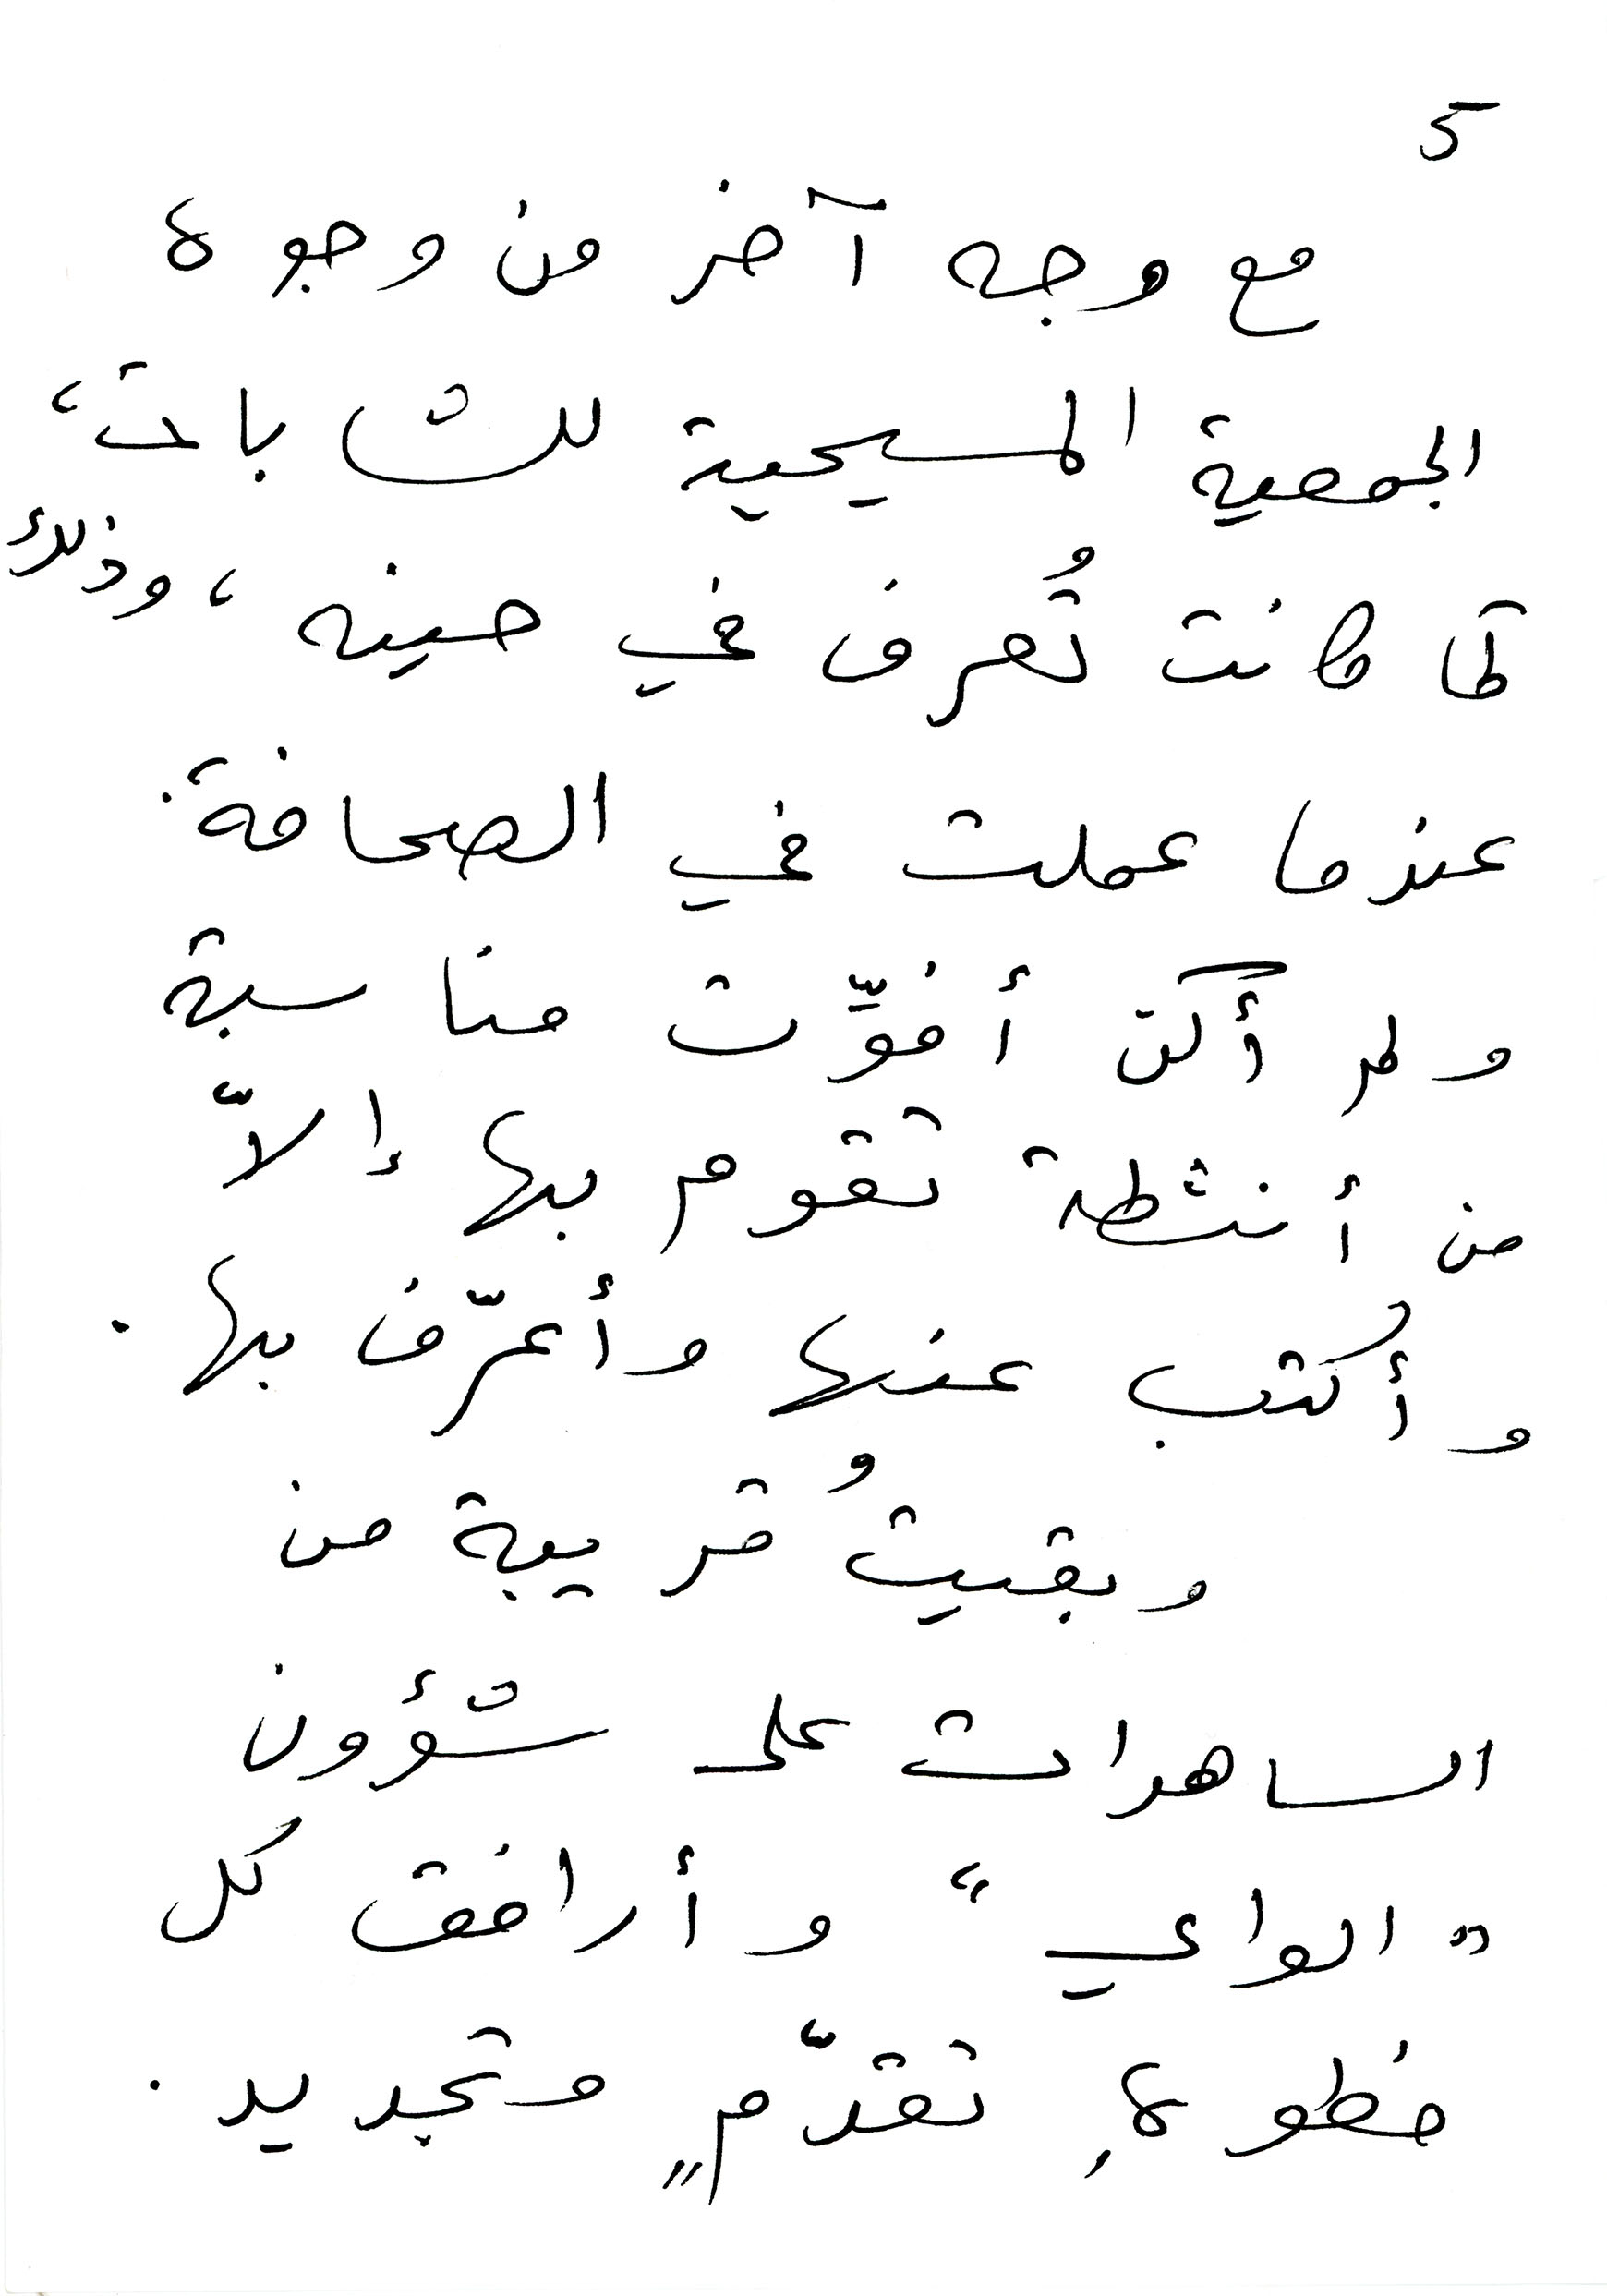 5
مع وجه آخر من وجوه
الجمعية المسيحية للشابات،
كما كانت تُعرف في حينه، وذلك
عندما عملت في الصحافة.
ولم أكن أفوّت مناسبة
من أنشطة تقوم بها إلاّ
وأكتب عنها وأعرّف بها.
وبقيتُ قريبة من
الساهرات على شؤون
"الواي" وأرافق كل
خطوةِ تقدّمٍ وتجديد.